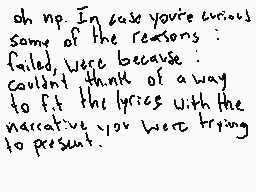 oh np. In case you're curious
some of the reasons i
failed, were because i
couldnt think of a way
to fit the lyrics with the
narrative you were trying
to present.